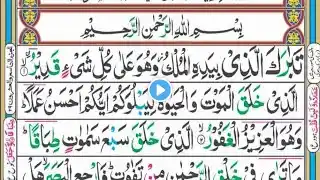 بِسْمِ اللّٰهِ الرَّحْمٰنِ الرَّحِيْمِ
تَبٰرَكَ الَّذِيْ بِيَدِهِ الْمُلْكُ وَهُوَ عَلٰى كُلِّ شَيْءٍ قَدِيْرُ
الَّذِيْ خَلَقَ الْمَوْتَ وَالْحَيٰوةَ لِيَبْلُوَكُمْ اَيُّكُمْ اَحْسَنُ عَمَلًا
وَهُوَ الْعَزِيْزُ الْغَفُوْرُ الَّذِيْ خَلَقَ سَبْعَ سَمٰوٰتٍ طِبَاقًا
مَا تَرٰى فِيْ خَلْقِ الرَّحْمٰنِ مِنْ تَفٰوُتٍ فَارْجِعِ الْبَصَرَ هَلْ